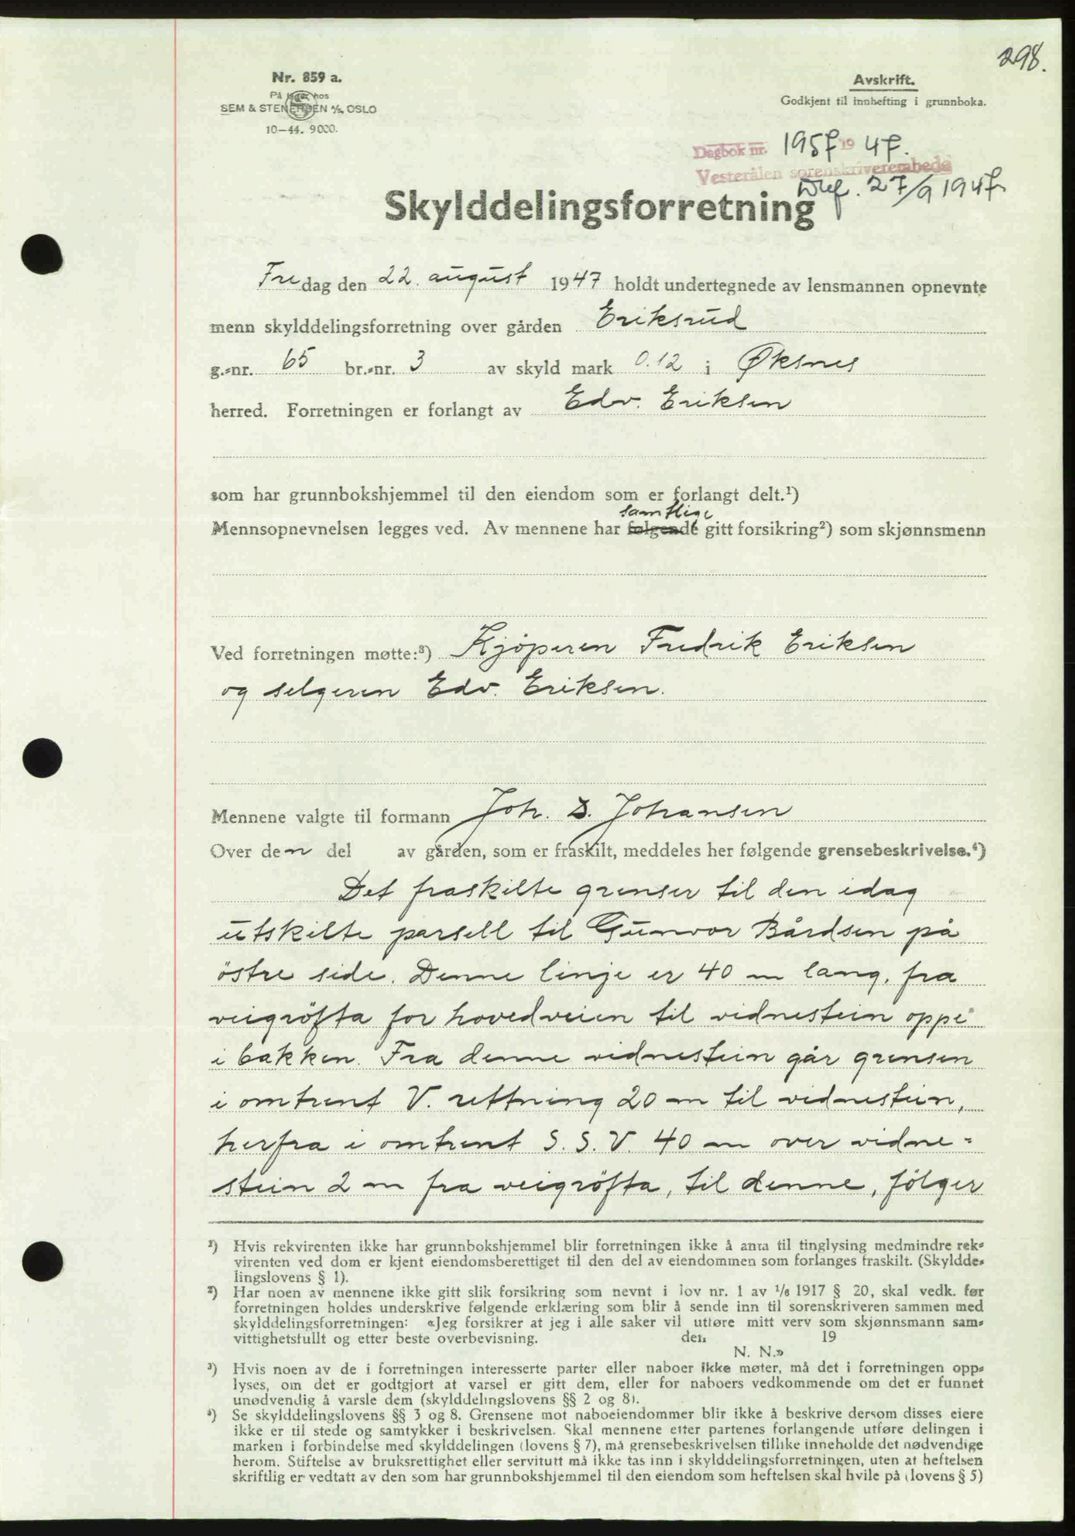 298.
Nr. 859 a.
På lager hos
SEM & STENERSEN A/S, OSLO
10-44. 9000.
Avskrift.
Godkjent til innhefting i grunnboka.
Dagbok nr. 1957 19 47.
Vesterålen sorenskriverembede
27/9 1947
Skylddelingsforretning
Fredag den 22. august 1947 holdt undertegnede av lensmannen opnevnte
menn skylddelingsforretning over gården Eriksrud
g.-nr. 65 br.-nr. 3 av skyld mark 0.12 i Øksnes
herred. Forretningen er forlangt av Edv. Eriksen
som har grunnbokshjemmel til den eiendom som er forlangt delt.¹)
samtlige
Mennsopnevnelsen legges ved. Av mennene har følgende gitt forsikring²) som skjønnsmenn
Ved forretningen møtte:³) Kjøperen Fredrik Eriksen
og selgeren Edv. Eriksen.
Mennene valgte til formann Joh. D. Johansen
Over den del av gården, som er fraskilt, meddeles her følgende grensebeskrivelse.⁴)
Det fraskilte grenser til den idag
utskilte parsell til Gunvor Bårdsen på
östre side. Denne linje er 40 m lang, fra
veigröfta for hovedveien til vidnestein oppe
i bakken. Fra denne vidnestein går grensen
i omtrent V. rettning 20 m til vidnestein,
herfra i omtrent S. S. V. 40 m over vidne=
stein 2 m fra veigröfta, til denne, følger
¹) Hvis rekvirenten ikke har grunnbokshjemmel blir forretningen ikke å anta til tinglysing medmindre rek-
virenten ved dom er kjent eiendomsberettiget til den del av eiendommen som forlanges fraskilt. (Skyldde-
lingslovens § 1).
²) Har noen av mennene ikke gitt slik forsikring som nevnt i lov nr. 1 av 1/6 1917 § 20, skal vedk. før
forretningen holdes underskrive følgende erklæring som blir å sende inn til sorenskriveren sammen med
skylddelingsforretningen: «Jeg forsikrer at jeg i alle saker vil utføre mitt verv som skjønnsmann sam-
vittighetsfullt og etter beste overbevisning. den 19
N. N.»
³) Hvis noen av de i forretningen interesserte parter eller naboer ikke møter, må det i forretningen opp-
lyses, om det er godtgjort at varsel er gitt dem, eller for naboers vedkommende om det er funnet
unødvendig å varsle dem (skylddelingslovens §§ 2 og 8).
⁴) Se skylddelingslovens §§ 3 og 8. Grensene mot naboeiendommer blir ikke å beskrive dersom disses eiere
ikke er til stede og samtykker i beskrivelsen. Skal mennene etter partenes forlangende utføre delingen i
marken i forbindelse med skylddelingen (lovens § 7), må grensebeskrivelsen tillike inneholde det nødvendige
herom. Stiftelse av bruksrettighet eller servitutt må ikke tas inn i skylddelingsforretningen, uten at heftelsen
skriftlig er vedtatt av den som har grunnbokshjemmel til den eiendom som heftelsen skal hvile på (lovens § 5)